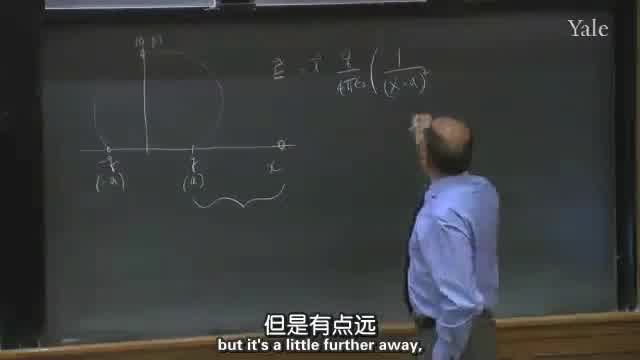 Yale
E = i q/4πε₀ ( 1/(x-a)²
-q q x
(-a) (a)
但是有点远
but it's a little further away,